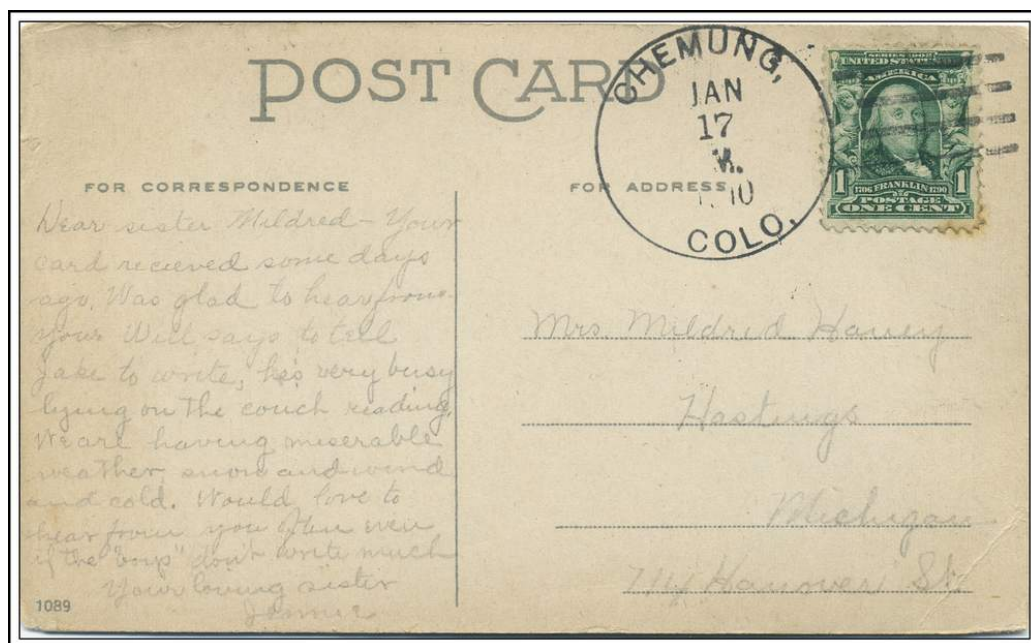 POST CARD
CHEMUNG,
JAN
17
M.
COLO.
SERIES 1902
UNITED STATES OF
AMERICA
1 1706 FRANKLIN 1790 1
POSTAGE
ONE CENT
FOR CORRESPONDENCE
FOR ADDRESS
Dear sister Mildred - Your
card recieved some days
ago. Was glad to hear from
you. Will says to tell
Jake to write, he's very busy
lying on the couch reading.
We are having miserable
weather, snow and wind
and cold. Would love to
hear from you often even
if the "boys" don't write much
Your loving sister
Jennie
Mrs. Mildred
Hastings
Michigan
Hanover St.
1089